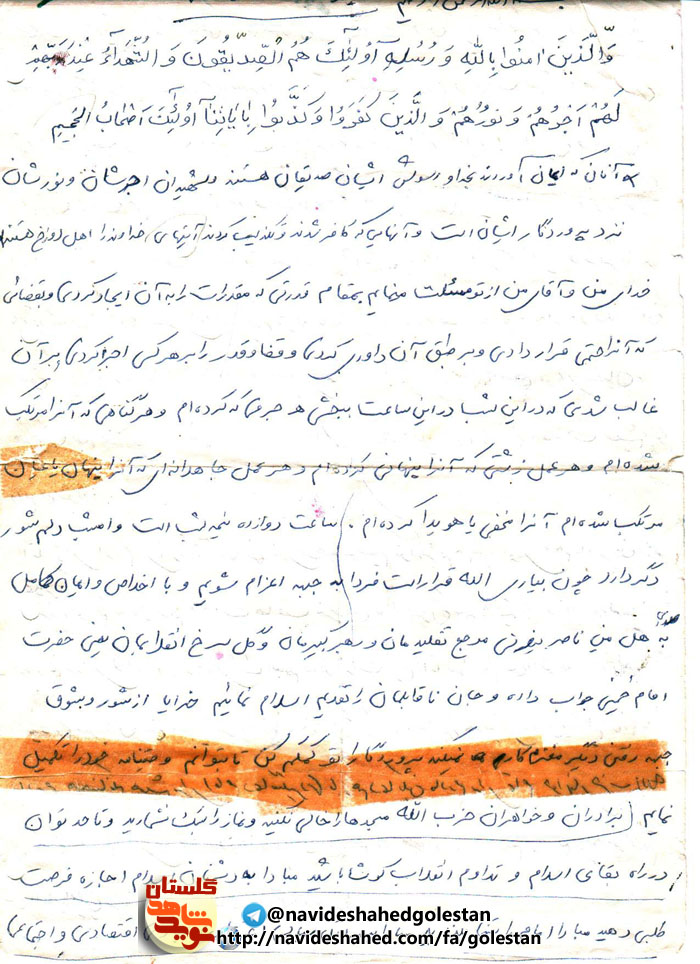 وَالَّذِينَ امَنُوا بِاللَّهِ وَ رُسُلِهِ أُولَئِكَ هُمُ الصِّدِّيقُونَ وَ الشُّهَدَآءُ عِنْدَ رَبِّهِمْ
لَهُمْ اَجْرُهُمْ وَ نُورُهُمْ وَ الَّذِينَ كَفَرُوا وَ كَذَّبُوا بِايَاتِنَا أُولَئِكَ أَصْحَابُ الْجَحِيمِ
آنان که ایمان آوردند بخدا و رسولش ایشان صدیقان هستند و شهیدان اجرشان و نورشان
نزد پروردگار ایشان است و آنهایی که کافر شدند و تکذیب کردند آیتهای خداوند را اهل دوزخ هستند
خدای من و آقای من از تو مسئلت مینمایم بمقام قدرتی که مقدرات را به آن ایجاد کردی و بقضائی
که آنرا حتمی قرار دادی و بر طبق آن داوری کردی و قضا و قدر را بر هر کس اجرا کردی بر آن
غالب شدی که در این شب و در این ساعت ببخشی هر جرمی که کرده‌ام و هر گناهی که آنرا مرتکب
شده‌ام و هر عمل زشتی که آنرا پنهانی کرده‌ام و هر عمل جاهلانه‌ای که آنرا پنهان یا عیان
مرتکب شده‌ام آنرا مخفی یا هویدا کرده‌ام. ساعت دوازده نیمه شب است و امشب دلم شور
دگر دارد چون بیاری الله قرار است فردا به جبهه اعزام شویم و با اخلاص و ایمان کامل
به هل من ناصر ینصرنی مرجع تقلیدمان و رهبر کبیرمان و گل سرخ انقلابمان یعنی حضرت
امام خمینی جواب داده و جان ناقابلمان را تقدیم اسلام نمائیم خدایا از شور و شوق
جبهه رفتن دگر مغزم کار نمیکند پروردگارا تو کمکم کن تا بتوانم وصیتنامه خود را تکمیل
نمایم. برادران و خواهران حزب الله مسجدها را خالی نکنید و نماز را سبک نشمارید و تا حد توان
در راه بقای اسلام و تداوم انقلاب کوشا باشید مبادا به دشمنان اسلام اجازه فرصت
طلبی دهید مبادا اقتصادی و اجتماعی
گلستان
نوید شاهد
@navideshahedgolestan
http://navideshahed.com/fa/golestan